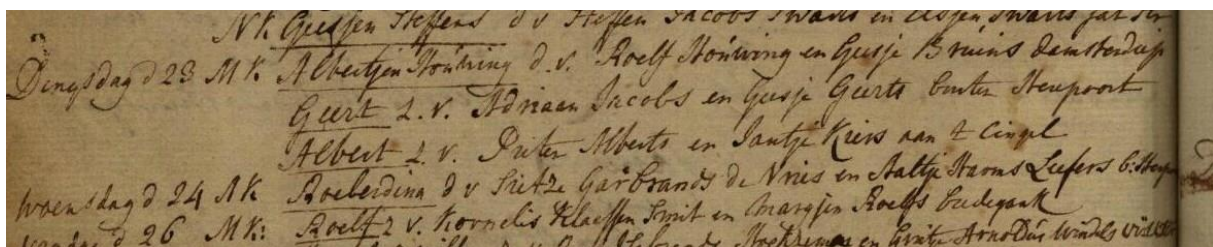 NK. Geesjen Steffens d v Steffen Jacobs Swarts en Elsjen Swarts
Dingsdag d 23 MK. Albertjen Houwing d. v. Roelf Houwing en Geesje Bruins damsterdiep
Geert Z. v. Adriaan Jacobs en Geesje Geerts buiten Steupoort
Albert Z. v. Pieter Alberts en Jantje Kiers aan t Cingel
Woensdag d 24 NK Roelerdina d v Sietze Garbrands de Vries en Aaltje Harms Leefers b.
d 26 MK: Roelf Z v. Kornelis Klaessen Smit en Margjen Roelfs
en Grietje